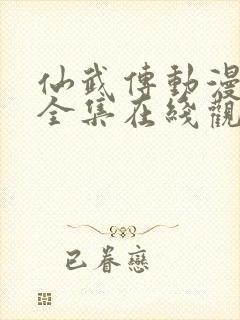 仙武傳動漫
全集在綫觀
已眷戀